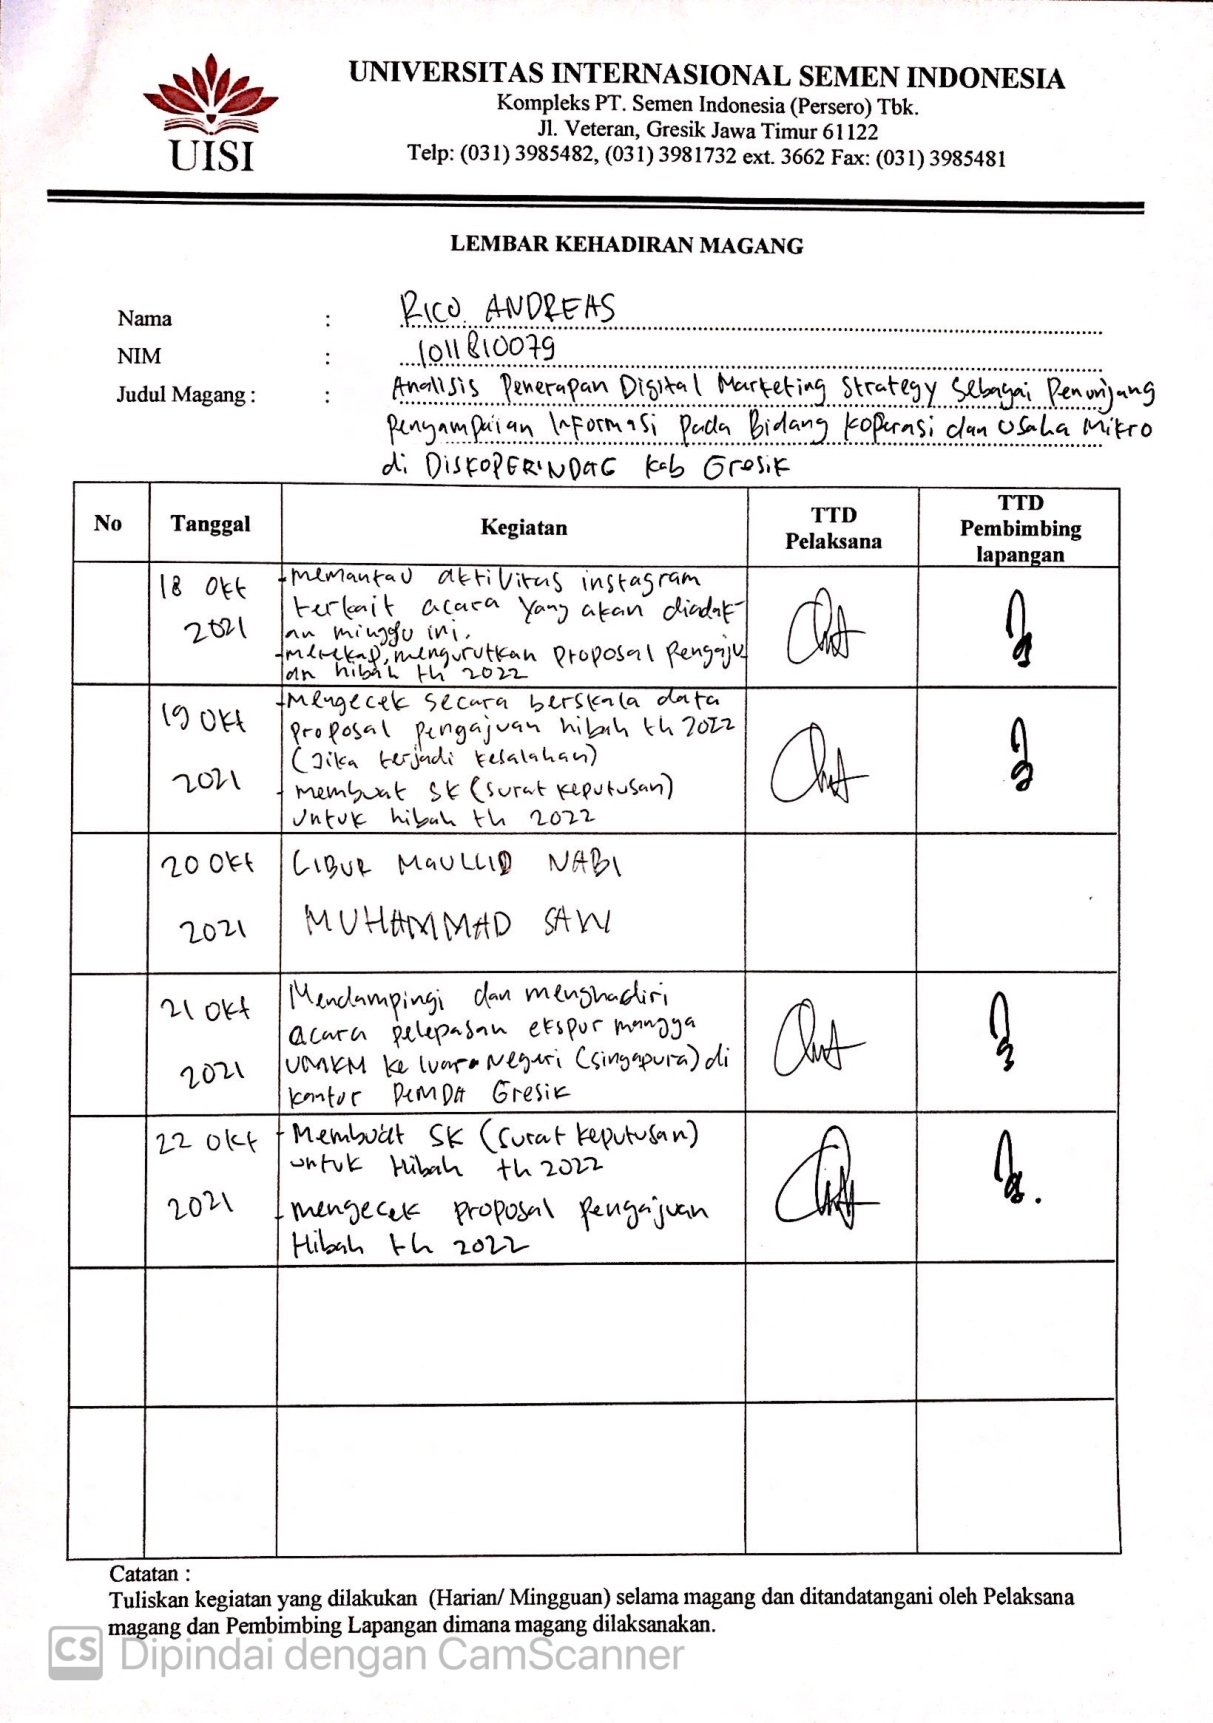 UISI
UNIVERSITAS INTERNASIONAL SEMEN INDONESIA
Kompleks PT. Semen Indonesia (Persero) Tbk.
Jl. Veteran, Gresik Jawa Timur 61122
Telp: (031) 3985482, (031) 3981732 ext. 3662 Fax: (031) 3985481
LEMBAR KEHADIRAN MAGANG
Nama : RICO ANDREAS
NIM : 1011810079
Judul Magang : : Analisis Penerapan Digital Marketing Strategy Sebagai Penunjang
Penyampaian Informasi Pada Bidang Koperasi dan Usaha Mikro
di DISKOPERINDAG Kab Gresik
No Tanggal Kegiatan TTD Pelaksana TTD Pembimbing lapangan
18 Okt 2021
- memantau aktivitas instagram
terkait acara yang akan diadak-
an minggu ini.
- merekap, mengurutkan proposal Pengaju
an hibah th 2022
19 Okt 2021
- Mengecek secara berskala data
proposal pengajuan hibah th 2022
(Jika terjadi kesalahan)
- membuat SK (surat keputusan)
untuk hibah th 2022
20 Okt 2021
LIBUR MAULLID NABI
MUHAMMAD SAW
21 Okt 2021
Mendampingi dan menghadiri
acara pelepasan ekspor mangga
UMKM ke luar Negeri (Singapura) di
kantor PEMDA Gresik
22 Okt 2021
- Membuat SK (surat keputusan)
untuk Hibah th 2022
- mengecek proposal Pengajuan
Hibah th 2022
Catatan :
Tuliskan kegiatan yang dilakukan (Harian/ Mingguan) selama magang dan ditandatangani oleh Pelaksana
magang dan Pembimbing Lapangan dimana magang dilaksanakan.
CS Dipindai dengan CamScanner